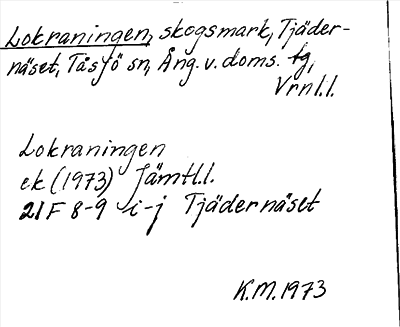 Lokraningen, skogsmark, Tjäder-
näset, Tåsjö sn, Ång. v. doms. tg,
Vrnl.l.
Lokraningen
ek (1973) Jämtl.l.
21F 8-9 i-j Tjädernäset
K.M. 1973